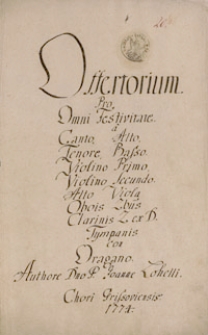 Offertorium.
Pro
Omni Festivitate.
a
Canto, Alto,
Tenore, Basso.
Violino Primo,
Violino Secundo.
Alto Viola
Obois 2bus
Clarinis 2 ex D.
Tympanis
con
Organo.
Authore Dno P. Joanne Lohelli.
Chori Grissoviensis
1774.